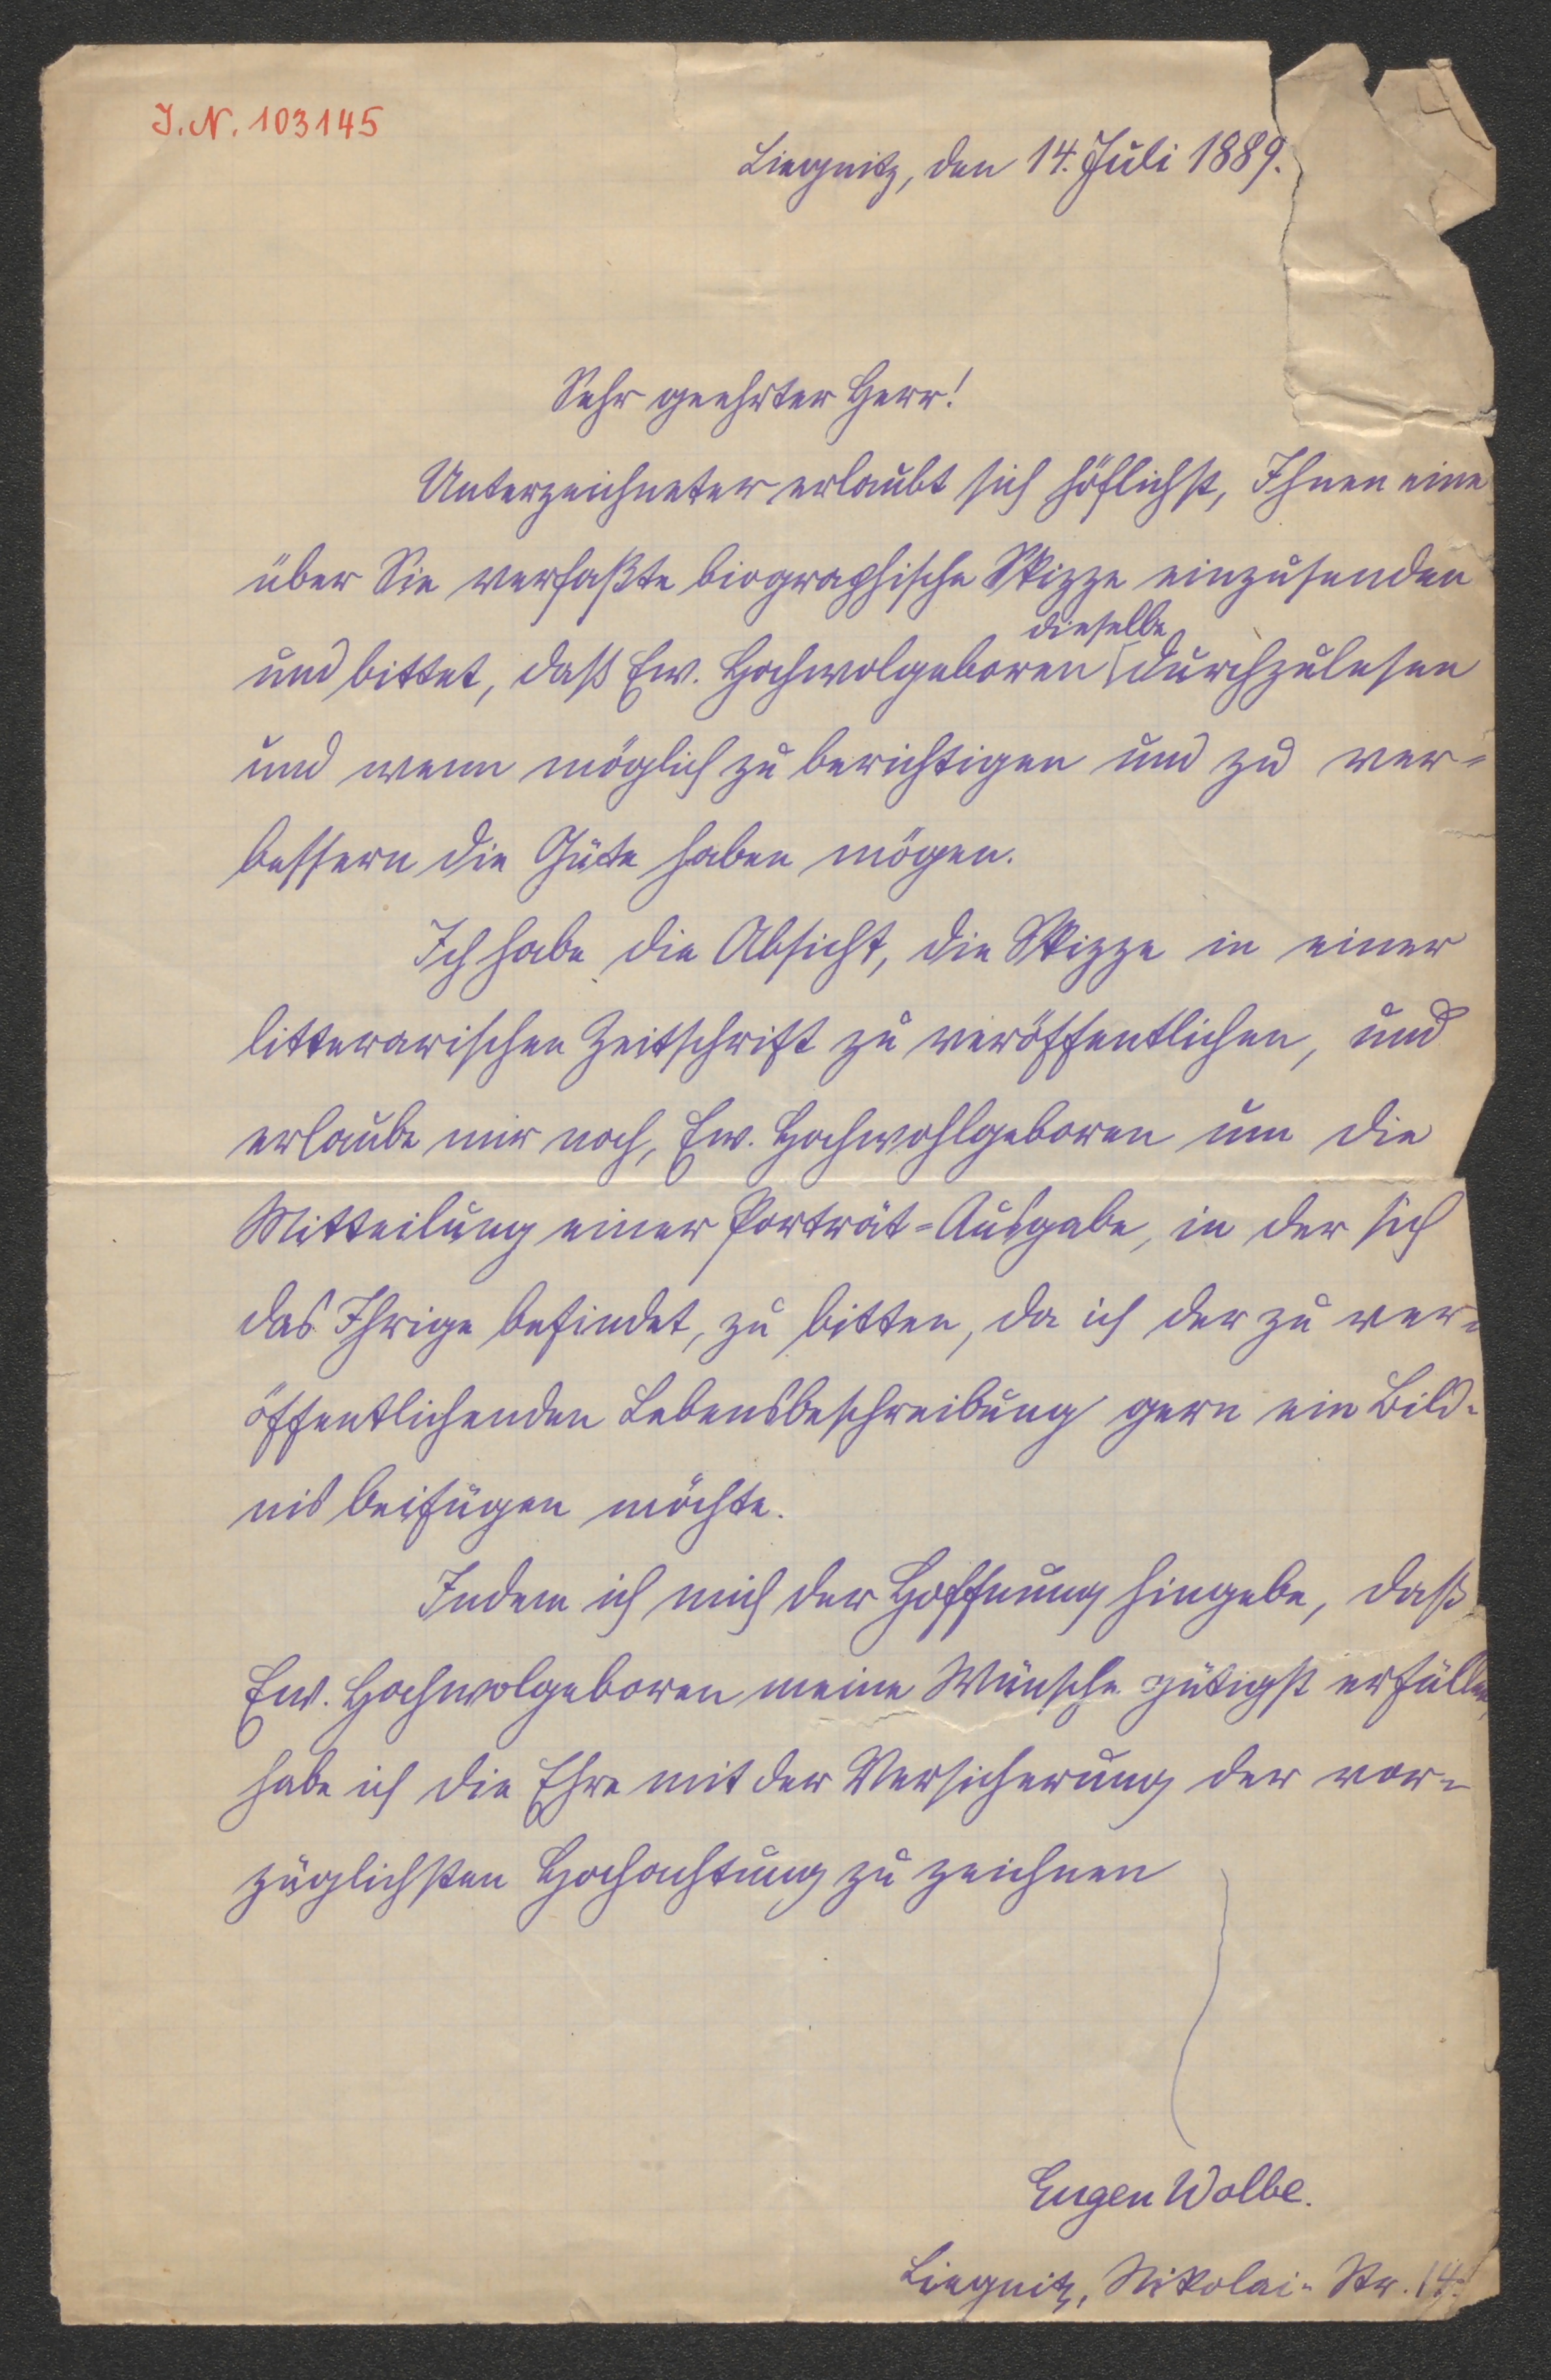 J.N. 103145
Liegnitz, den 14. Juli 1889.
Sehr geehrter Herr!
Unterzeichneter erlaubt sich höflichst, Ihnen eine
über Sie verfaßte biographische Skizze einzusenden
dieselbe
und bittet, daß Ew. Hochwolgeboren durchzulesen
und wenn möglich zu berichtigen und zu ver-
bessern die Güte haben mögen.
Ich habe die Absicht, die Skizze in einer
litterarischen Zeitschrift zu veröffentlichen, und
erlaube mir noch, Ew. Hochwohlgeboren um die
Mitteilung einer Porträt-Ausgabe, in der sich
das Ihrige befindet, zu bitten, da ich der zu ver-
öffentlichenden Lebensbeschreibung gern ein Bild-
nis beifügen möchte.
Indem ich mich der Hoffnung hingebe, daß
Ew. Hochwolgeboren meine Wünsche gütigst erfüllen,
habe ich die Ehre mit der Versicherung der vor-
züglichsten Hochachtung zu zeichnen
Eugen Wolbe.
Liegnitz, Nikolai-Str. 14.